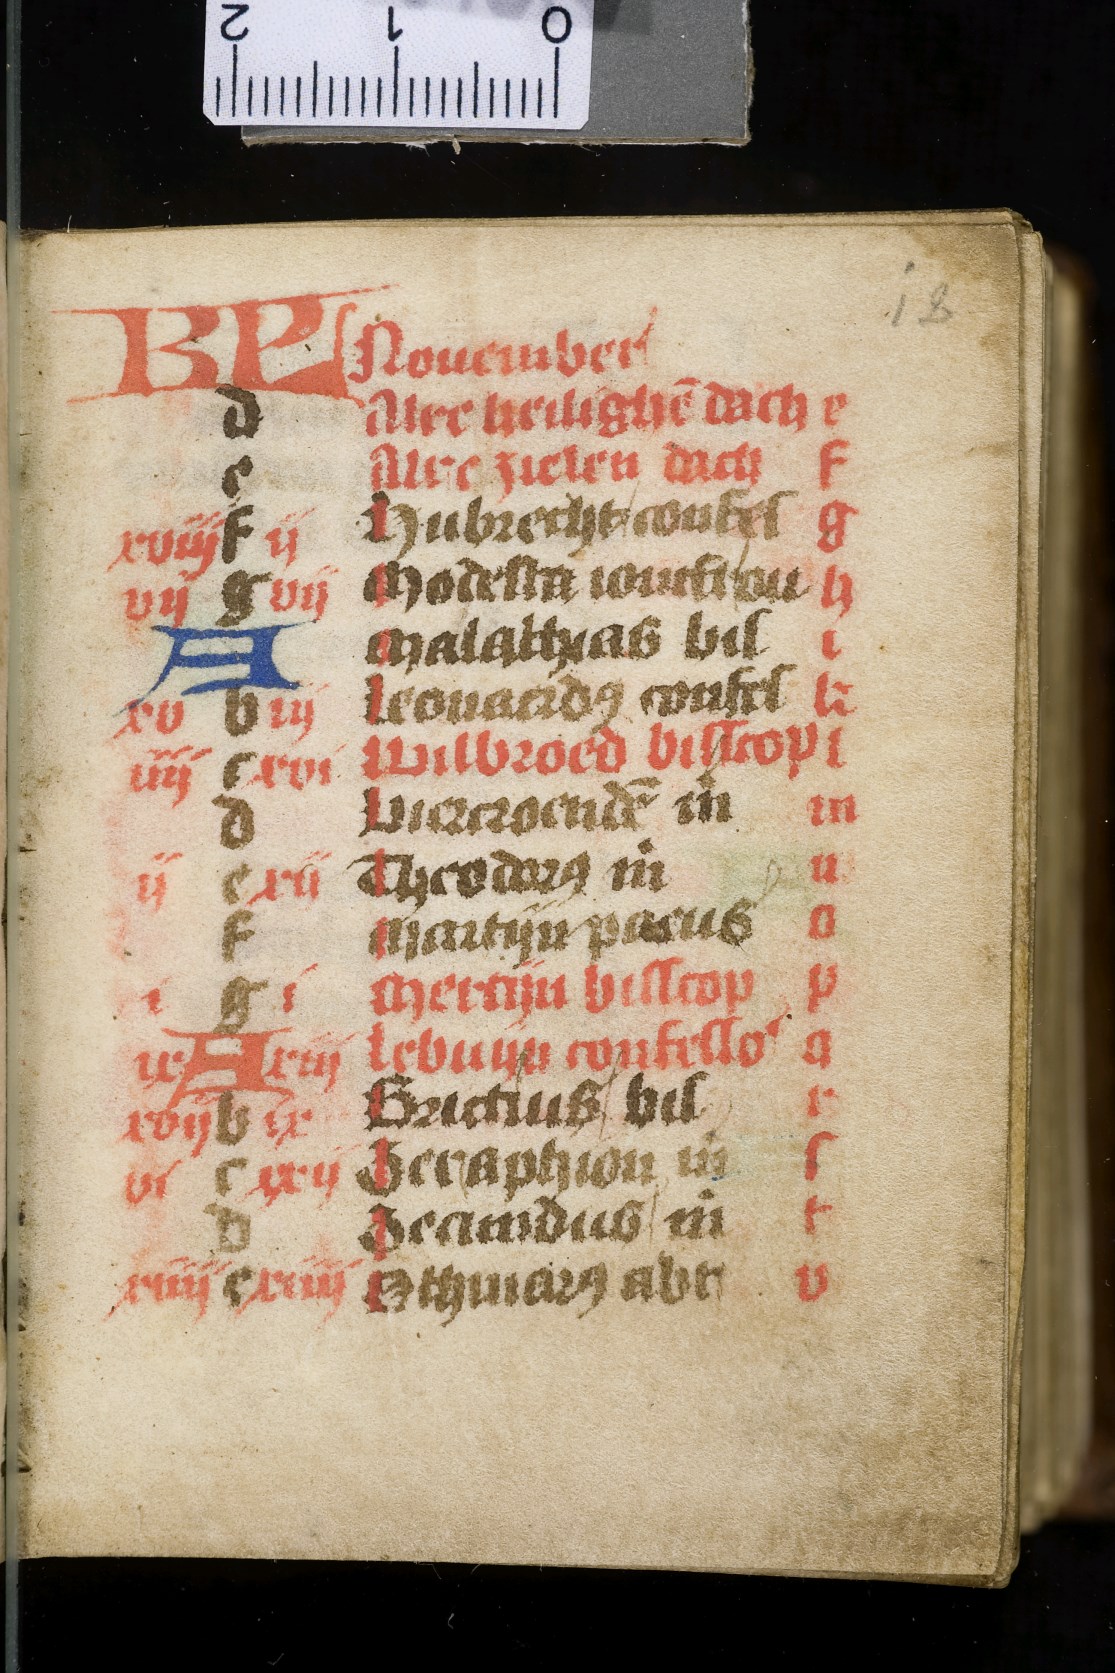 2 1 0
18
KL November
d Alre heilighē dach e
e Alre zielen dach f
xviiij f ij Hubrecht confes g
vij g vij Modesta h
A Malathyas bis i
xv b iij Leonardꝯ confes k
iiij c xvi Wilbroed bisscop l
d Viercroendē m̄ m
ij e xij Theodorꝯ m̄ n
f Martijn paeus o
i g i Mertijn bisscop p
ix A xiij Lebuijn confessor q
xvij b ix Brictius bis r
vi c xxij Seraphion m̄ s
d Secundus m̄ t
xiiij e xiiij Othmarꝯ abt v